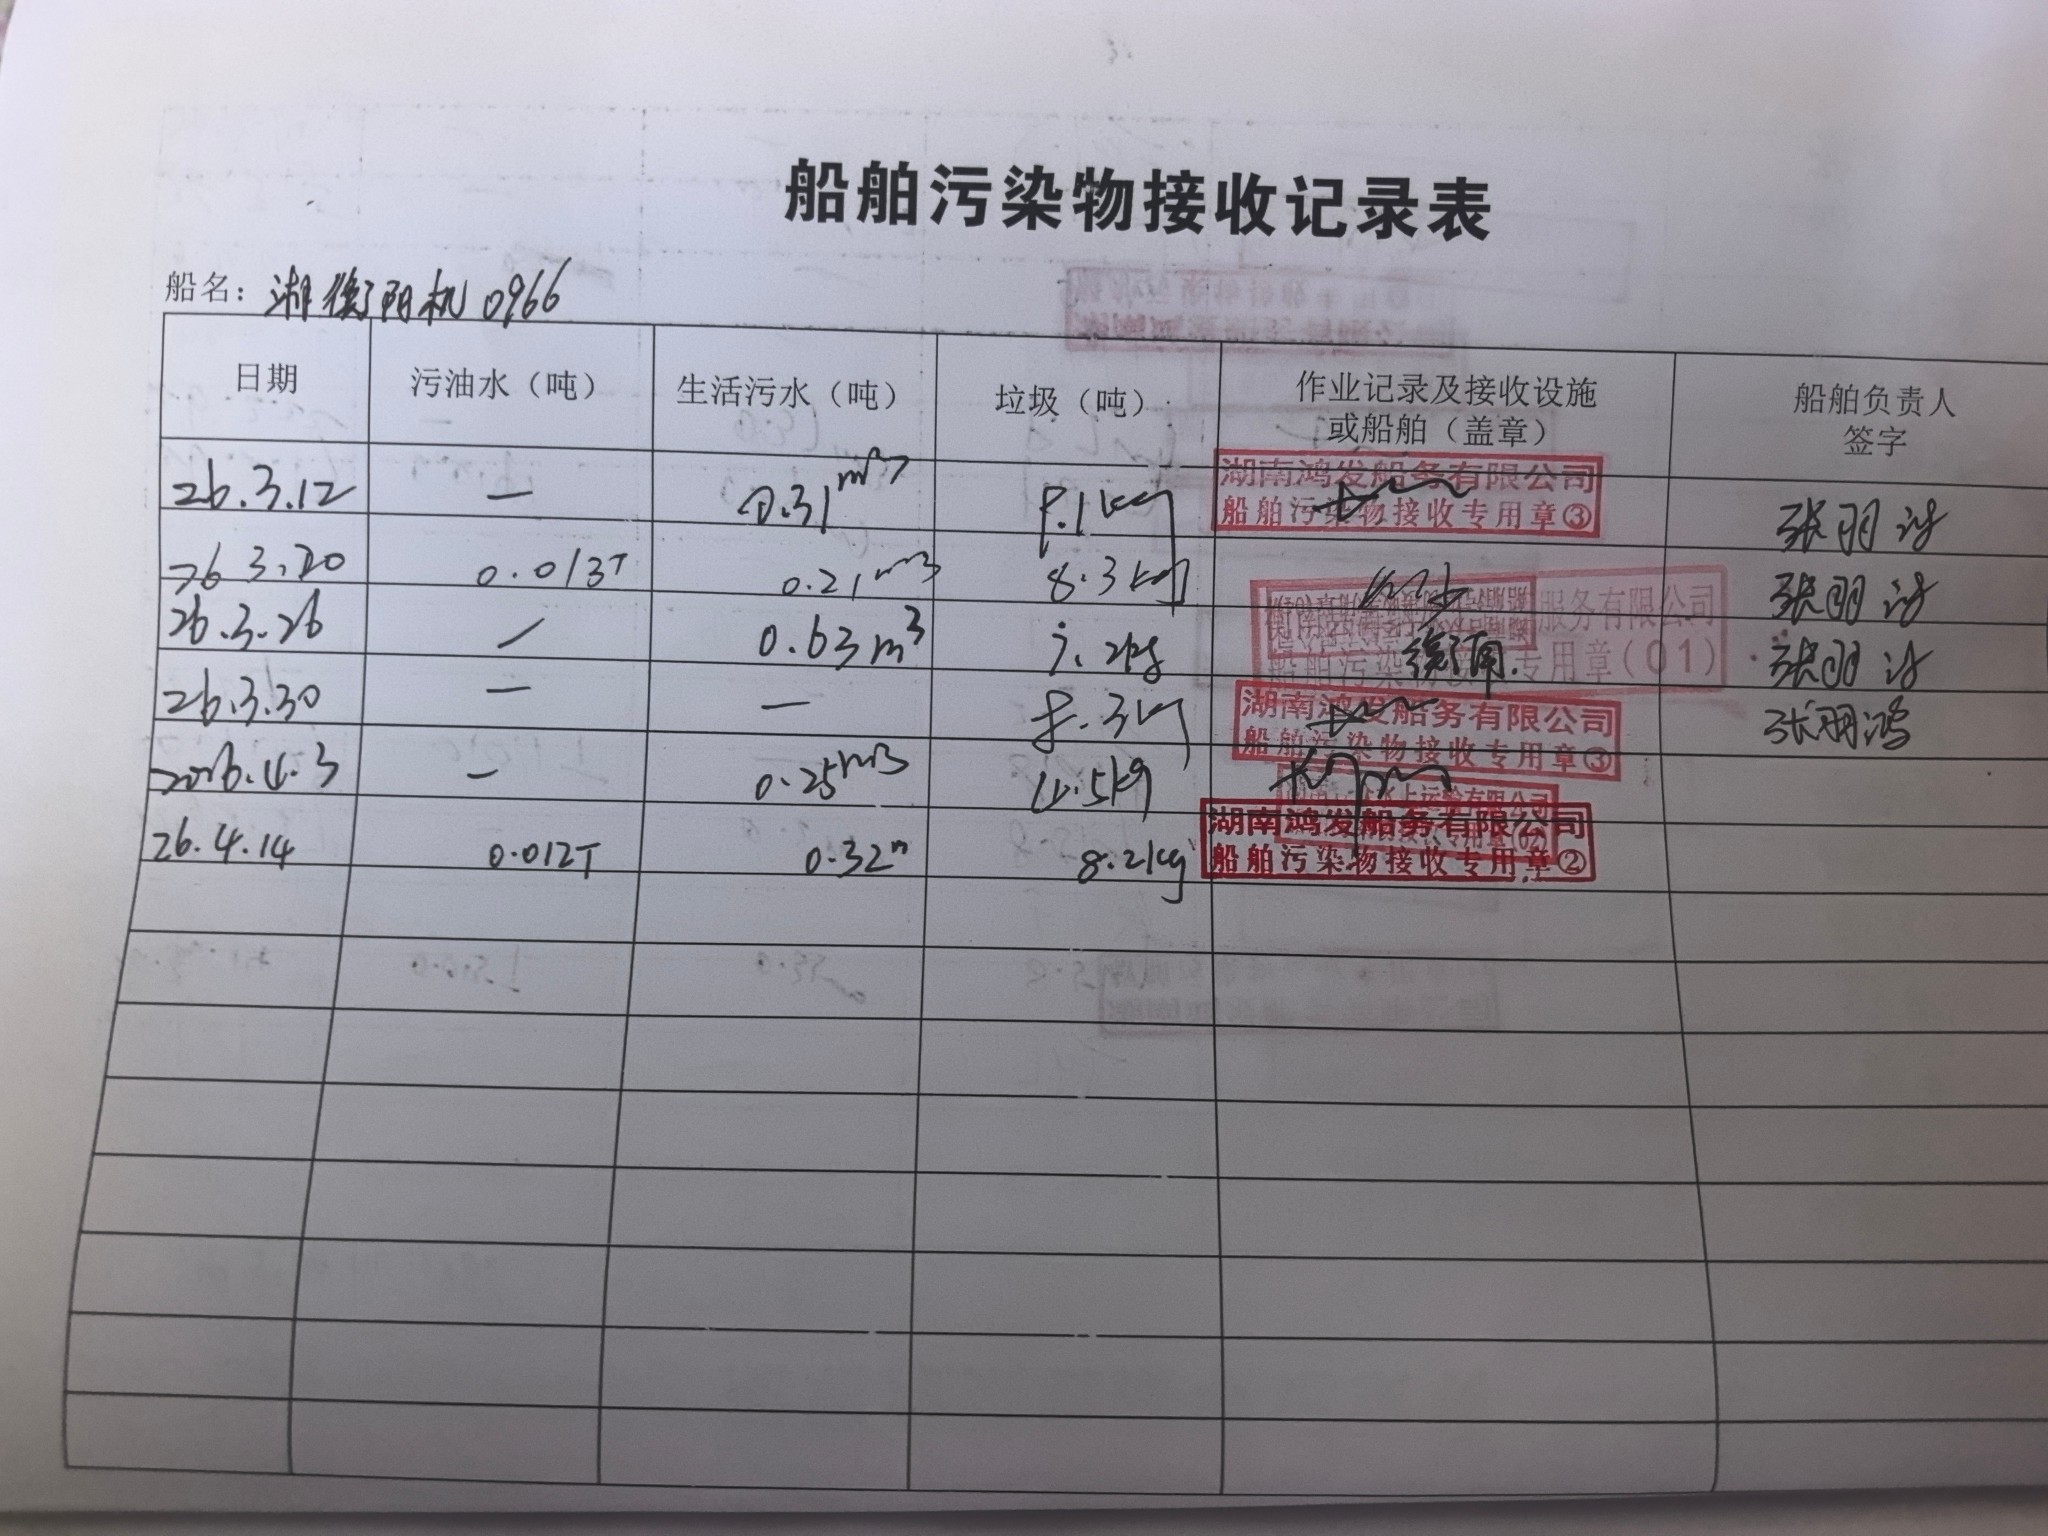 船舶污染物接收记录表
船名：湘衡阳机0966
日期 污油水（吨） 生活污水（吨） 垃圾（吨） 作业记录及接收设施或船舶（盖章） 船舶负责人签字
26.3.12 — 0.31m³ 8.1kg 湖南鸿发船务有限公司 船舶污染物接收专用章③
26.3.20 0.013T 0.21m3 8.3kg
26.3.26 / 0.63m³ 服务有限公司 船舶污染物接收专用章(01)
26.3.30 — — 8.3kg 湖南鸿发船务有限公司 船舶污染物接收专用章③ 张羽鸿
2026.4.3 — 0.25m3
26.4.14 0.012T 0.32 8.2kg 湖南鸿发船务有限公司 船舶污染物接收专用章②